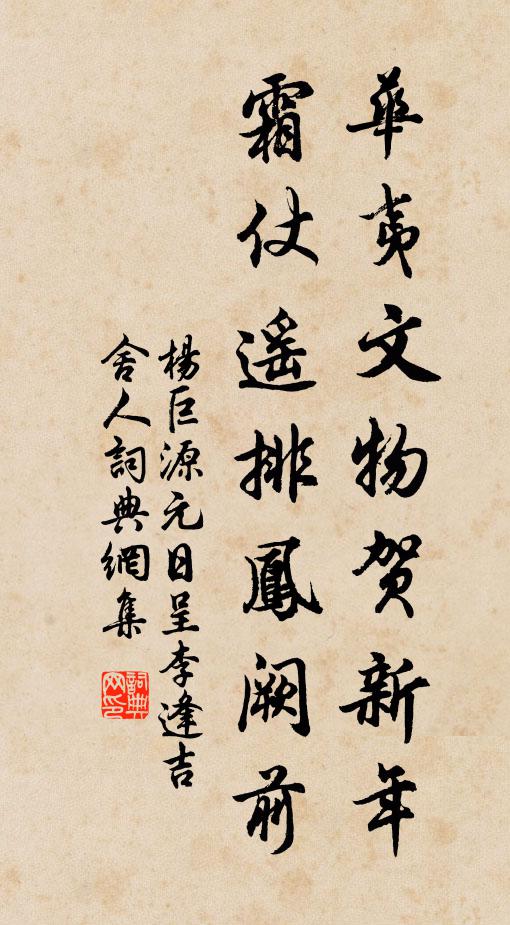 華夷文物賀新年
霜仗遥排鳳闕前
楊巨源元日呈李逢吉
舍人詞典網集
詞典
网印